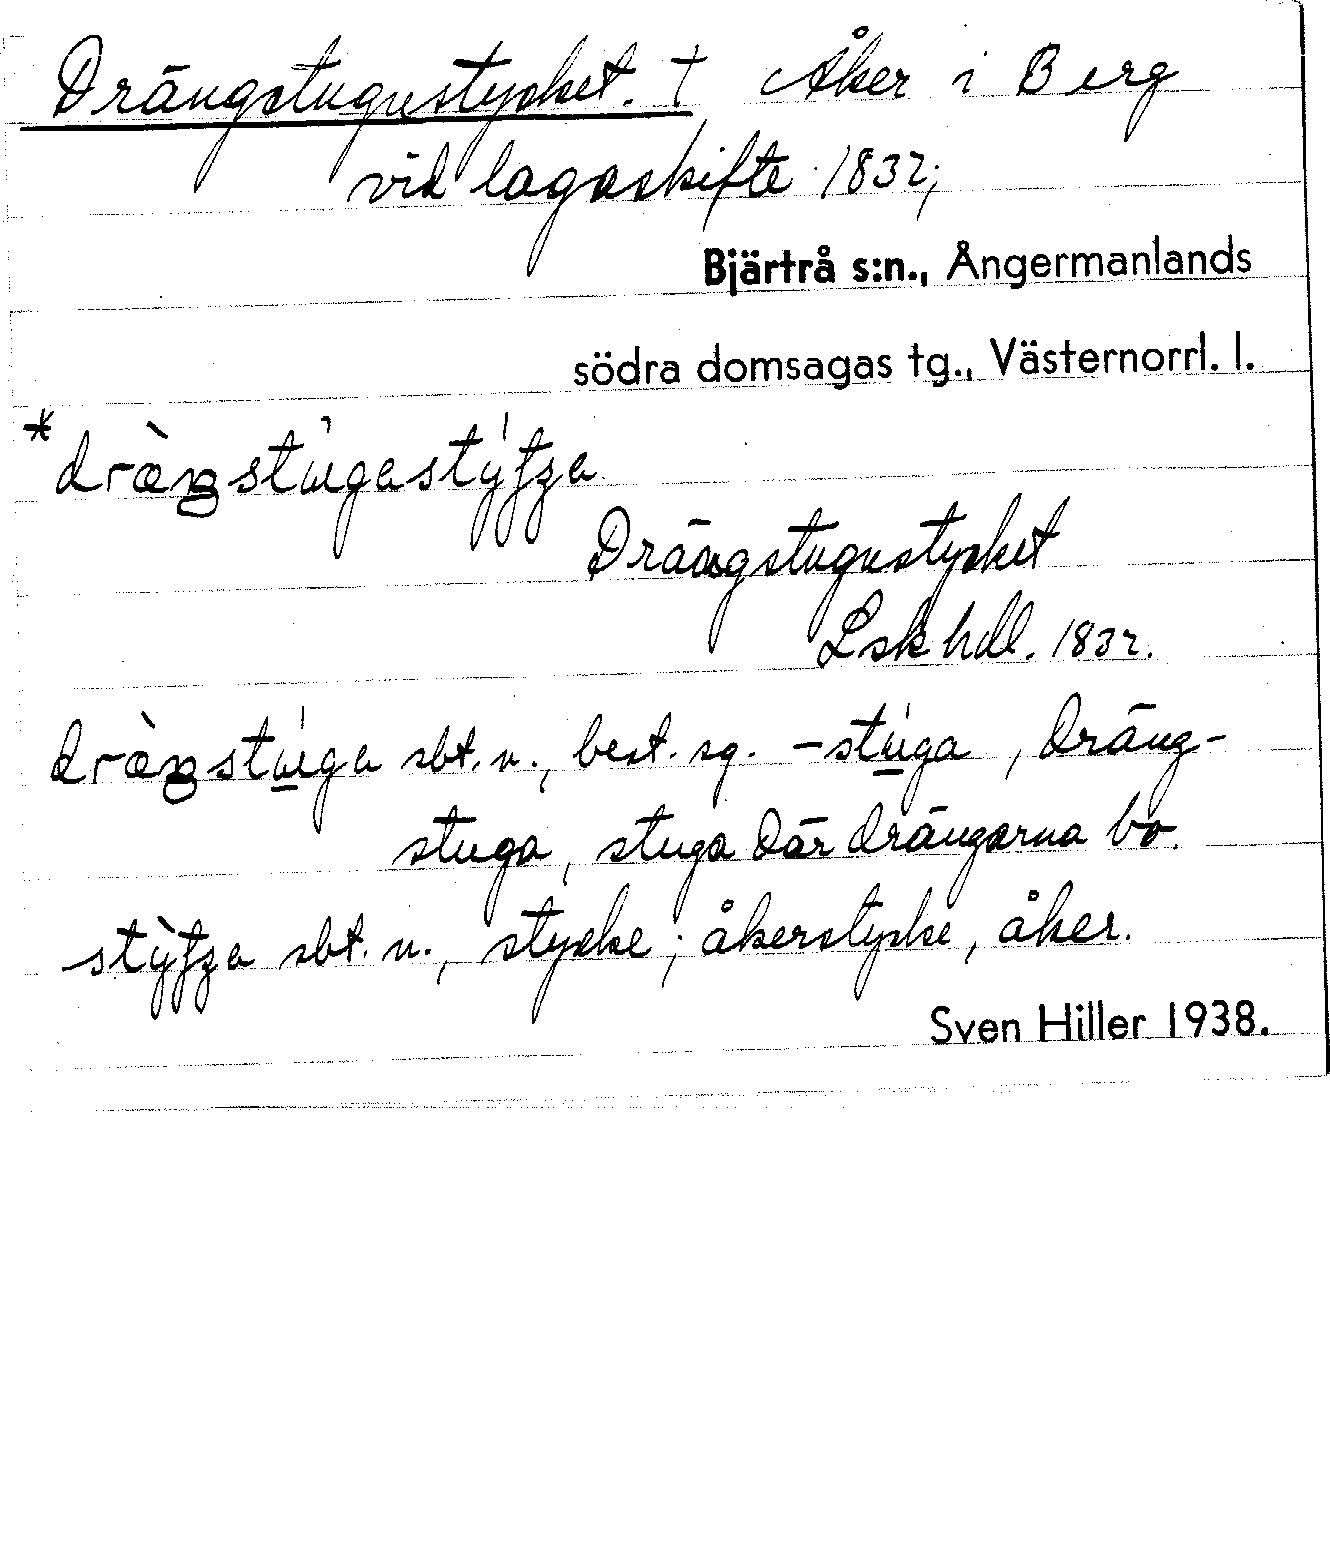 Drängstugustycket. † Åker i Berg
vid lagaskifte 1832;
Bjärtrå s:n., Ångermanlands
södra domsagas tg., Västernorrl. l.
*dræ̀ŋstu̇gastýtʃa
Drängstugustycket
Lsk hdl. 1832.
dræ̀ŋstúga sbt. n., best. sg. -stúga, dräng-
stuga, stuga där drängarna bo.
stỳtʃa sbt. n., stycke; åkerstycke, åker.
Sven Hiller 1938.